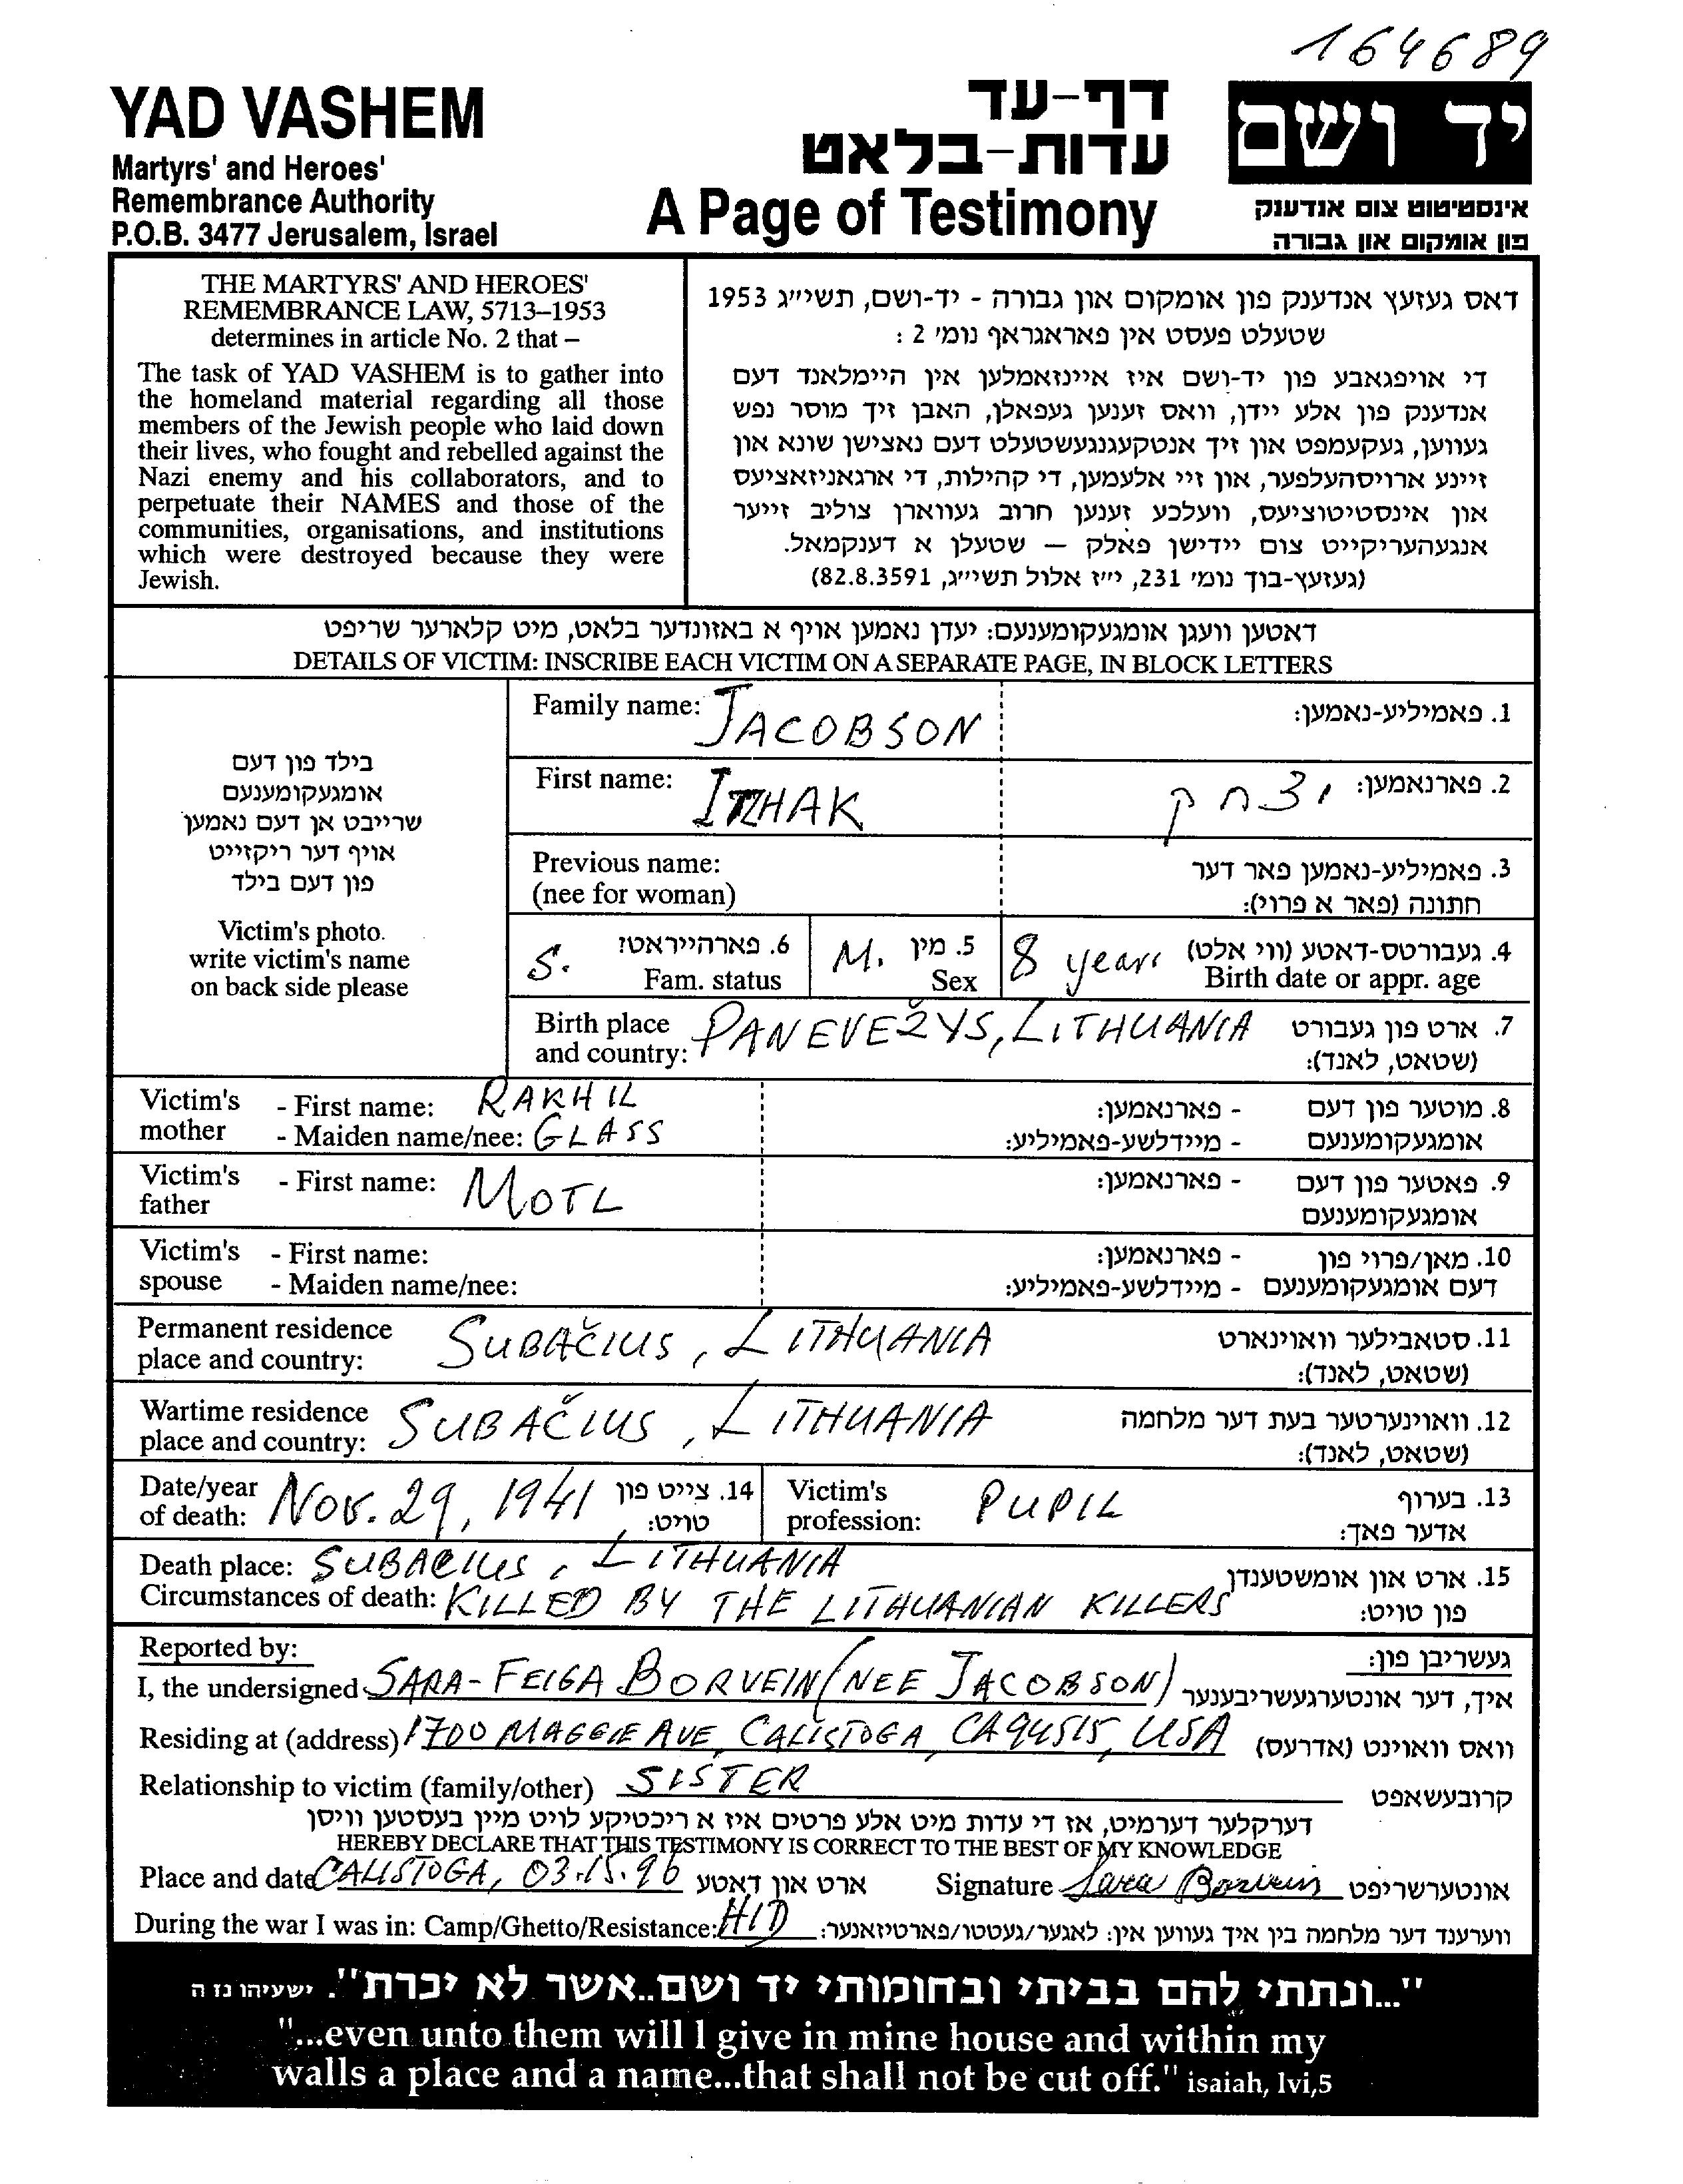 164689
YAD VASHEM
Martyrs' and Heroes'
Remembrance Authority
P.O.B. 3477 Jerusalem, Israel
דף-עד
עדות-בלאט
A Page of Testimony
יד ושם
אינסטיטוט צום אנדענק
פון אומקום און גבורה
THE MARTYRS' AND HEROES'
REMEMBRANCE LAW, 5713–1953
determines in article No. 2 that –
The task of YAD VASHEM is to gather into
the homeland material regarding all those
members of the Jewish people who laid down
their lives, who fought and rebelled against the
Nazi enemy and his collaborators, and to
perpetuate their NAMES and those of the
communities, organisations, and institutions
which were destroyed because they were
Jewish.
דאס געזעץ אנדענק פון אומקום און גבורה - יד-ושם, תשי״ג 1953
שטעלט פעסט אין פאראגראף נומ׳ 2 :
די אויפגאבע פון יד-ושם איז איינזאמלען אין היימלאנד דעם
אנדענק פון אלע יידן, וואס זענען געפאלן, האבן זיך מוסר נפש
געווען, געקעמפט און זיך אנטקעגנגעשטעלט דעם נאצישן שונא און
זיינע ארויסהעלפער, און זיי אלעמען, די קהילות, די ארגאניזאציעס
און אינסטיטוציעס, וועלכע זענען חרוב געווארן צוליב זייער
אנגעהעריקייט צום יידישן פאלק — שטעלן א דענקמאל.
(געזעץ-בוך נומ׳ 231, י״ז אלול תשי״ג, 82.8.3591)
דאטען וועגן אומגעקומענעם: יעדן נאמען אויף א באזונדער בלאט, מיט קלארער שריפט
DETAILS OF VICTIM: INSCRIBE EACH VICTIM ON A SEPARATE PAGE, IN BLOCK LETTERS
בילד פון דעם
אומגעקומענעם
שרייבט אן דעם נאמען
אויף דער ריקזייט
פון דעם בילד
Victim's photo.
write victim's name
on back side please
Family name: JACOBSON 1. פאמיליע-נאמען:
First name: ITZHAK יצחק 2. פארנאמען:
Previous name:
(nee for woman)
3. פאמיליע-נאמען פאר דער
חתונה (פאר א פרוי):
S. 6. פארהייראט?
Fam. status
M. 5. מין
Sex
8 years 4. געבורטס-דאטע (ווי אלט)
Birth date or appr. age
Birth place
and country: PANEVEŽYS, LITHUANIA
7. ארט פון געבורט
(שטאט, לאנד):
Victim's mother - First name: RAKHIL
- Maiden name/nee: GLASS
8. מוטער פון דעם - פארנאמען:
אומגעקומענעם - מיידלשע-פאמיליע:
Victim's father - First name: MOTL
9. פאטער פון דעם - פארנאמען:
אומגעקומענעם
Victim's spouse - First name:
- Maiden name/nee:
10. מאן/פרוי פון - פארנאמען:
דעם אומגעקומענעם - מיידלשע-פאמיליע:
Permanent residence
place and country: SUBAČIUS, LITHUANIA
11. סטאבילער וואוינארט
(שטאט, לאנד):
Wartime residence
place and country: SUBAČIUS, LITHUANIA
12. וואוינערטער בעת דער מלחמה
(שטאט, לאנד):
Date/year
of death: NOV. 29, 1941
14. צייט פון
טויט:
Victim's
profession: PUPIL
13. בערוף
אדער פאך:
Death place: SUBACIUS, LITHUANIA
Circumstances of death: KILLED BY THE LITHUANIAN KILLERS
15. ארט און אומשטענדן
פון טויט:
Reported by: געשריבן פון:
I, the undersigned SARA-FEIGA BORVEIN (NEE JACOBSON) איך, דער אונטערגעשריבענער
Residing at (address) 1700 MAGGIE AVE, CALISTOGA, CA 94515, USA וואס וואוינט (אדרעס)
Relationship to victim (family/other) SISTER קרובעשאפט
דערקלער דערמיט, אז די עדות מיט אלע פרטים איז א ריכטיקע לויט מיין בעסטען וויסן
HEREBY DECLARE THAT THIS TESTIMONY IS CORRECT TO THE BEST OF MY KNOWLEDGE
Place and date CALISTOGA, 03.15.96 ארט און דאטע Signature Sara Borvein אונטערשריפט
During the war I was in: Camp/Ghetto/Resistance: HID ווערענד דער מלחמה בין איך געווען אין: לאגער/געטטו/פארטיזאנער:
"...ונתתי להם בביתי ובחומותי יד ושם..אשר לא יכרת". ישעיהו נז ה
"...even unto them will I give in mine house and within my
walls a place and a name...that shall not be cut off." isaiah, lvi,5